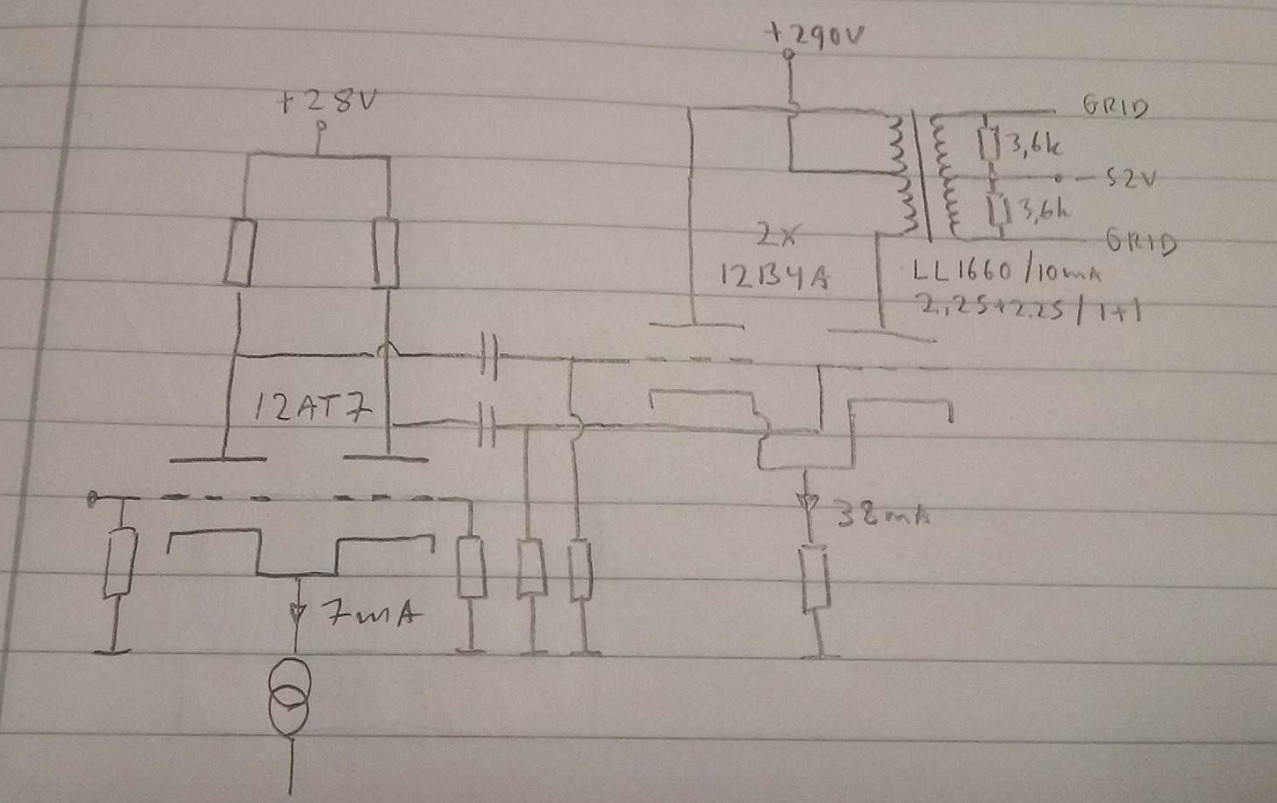 +290V
+28V
GRID
3,6k
-52V
3,6k
GRID
2x
12B4A
LL1660/10mA
2,25+2.25/1+1
12AT7
38mA
7mA